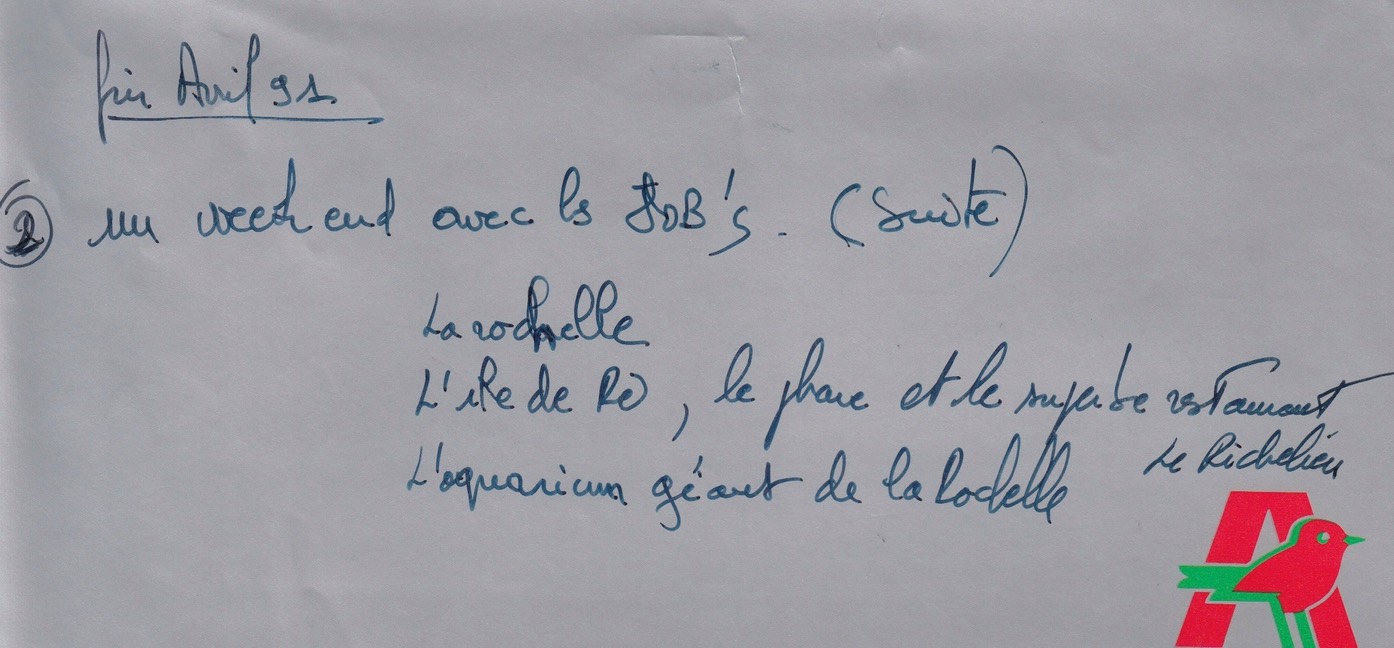 fin Avril 91
2 un week end avec les JOB's. (Suite)
La rochelle
L'ile de Ré, le phare et le superbe restaurant
Le Richelieu
L'aquarium géant de la Rochelle